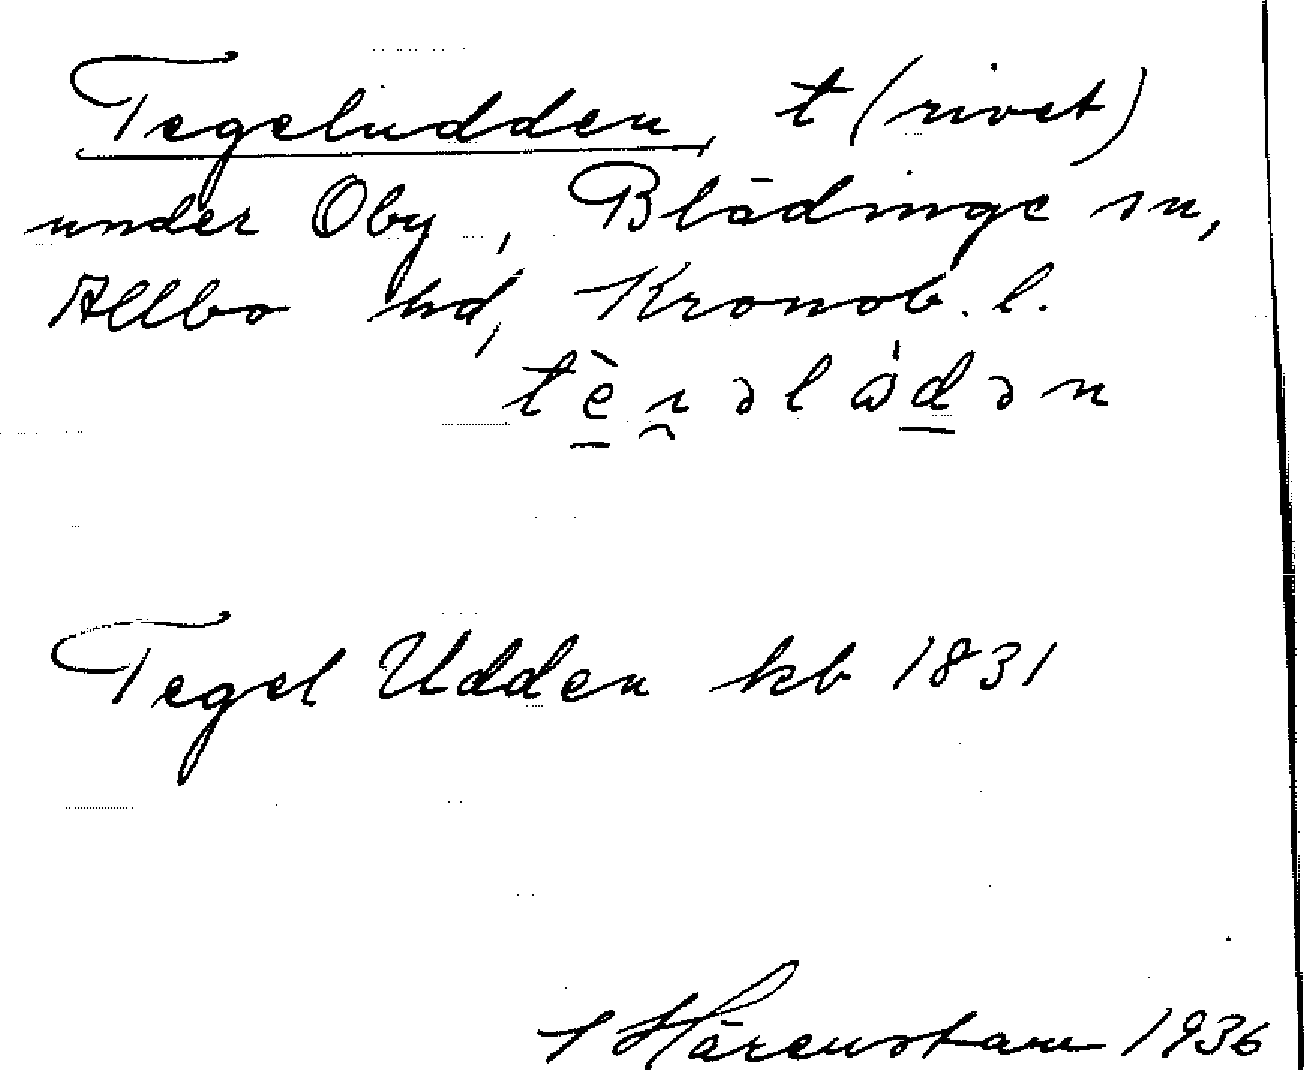 Tegeludden, t (rivet)
under Oby, Blädinge sn,
Allbo hd, Kronob. l.
Tegel Udden kb 1831
S Härenstam 1936